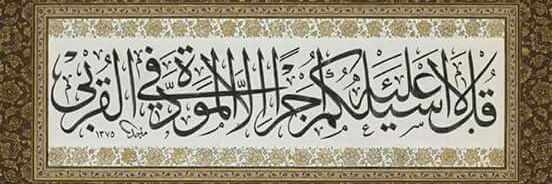 قُل لَّا أَسْأَلُكُمْ عَلَيْهِ أَجْرًا إِلَّا الْمَوَدَّةَ فِي الْقُرْبَىٰ
ماجد ١٣٧٥